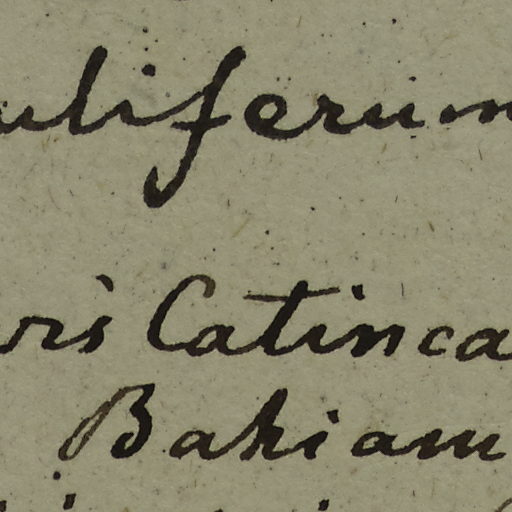 uliferum
ris Catinca
Bahiam